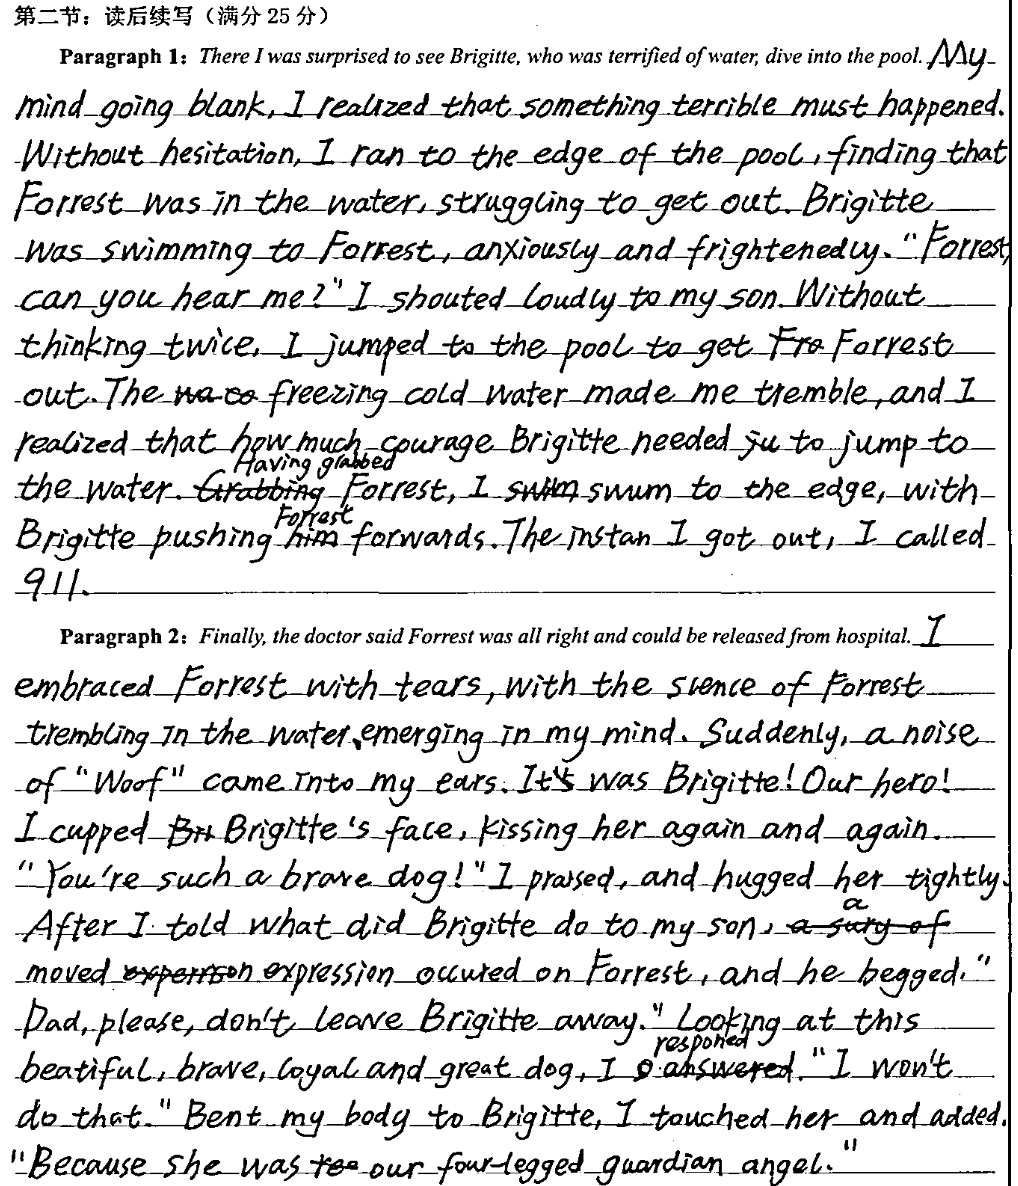 第二节：读后续写（满分 25 分）
Paragraph 1: There I was surprised to see Brigitte, who was terrified of water, dive into the pool. My
mind going blank, I realized that something terrible must happened.
Without hesitation, I ran to the edge of the pool, finding that
Forrest was in the water, struggling to get out. Brigitte
was swimming to Forrest, anxiously and frightenedly. "Forrest,
can you hear me?" I shouted loudly to my son. Without
thinking twice, I jumped to the pool to get Forrest
out. The freezing cold water made me tremble, and I
realized that how much courage Brigitte needed to jump to
the water. Having grabbed Forrest, I swum to the edge, with
Brigitte pushing Forrest forwards. The instan I got out, I called
911.
Paragraph 2: Finally, the doctor said Forrest was all right and could be released from hospital. I
embraced Forrest with tears, with the scence of Forrest
trembling in the water, emerging in my mind. Suddenly, a noise
of "Woof" came into my ears. It was Brigitte! Our hero!
I cupped Brigitte's face, kissing her again and again.
"You're such a brave dog!" I praised, and hugged her tightly.
After I told what did Brigitte do to my son, a
moved expression occured on Forrest, and he begged. "
Dad, please, don't leave Brigitte away." Looking at this
beatiful, brave, loyal and great dog, I responed. "I won't
do that." Bent my body to Brigitte, I touched her and added.
"Because she was our four-legged guardian angel."